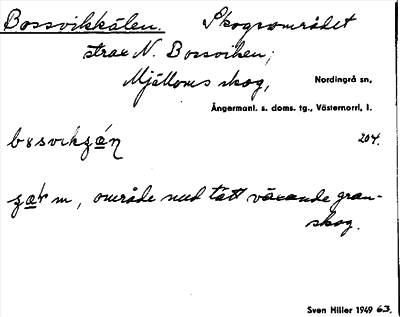 Bossvikkälen. Skogsområdet
strax N. Bossviken;
Mjälloms skog,
Nordingrå sn,
Ångermanl. s. doms. tg., Västernorrl. l.
204.
m, område med tätt växande gran-
skog.
Sven Hiller 1949 63.